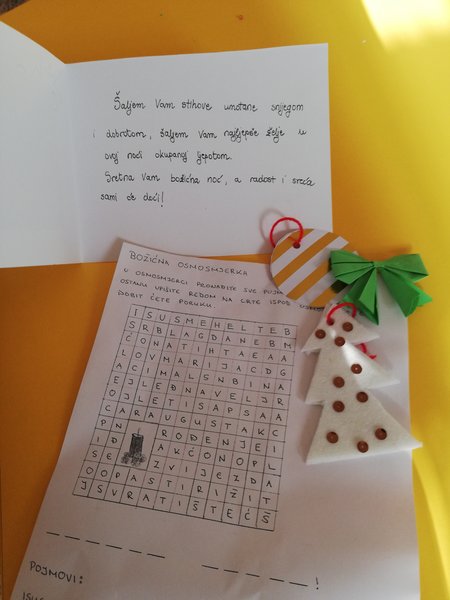 Šaljem Vam stihove umotane snijegom
i dobrotom, šaljem Vam najljepše želje u
ovoj noći okupanoj ljepotom.
Sretna Vam božićna noć, a radost i sreća
sami će doći!
BOŽIĆNA OSMOSMJERKA
U OSMOSMJERCI PRONAĐITE SVE
OSTANU UPIŠITE REDOM NA CRTE ISPOD
DOBIT ĆETE PORUKU.
I S U S M E H E L T E B
S R B L A G D A N E B M
Ć O N A T I H T A E A A
L O V M A R I J A C D G
A C I M A L S N B I N A
E J L E Đ N A V E L J R
O J L E T I S A P S A A
C A R A U G U S T A K C
P N R O Đ E N J E I
I Đ A K Ć O N O P L
S E Z V I J E Z D A
O O P A S T I R I Ž I T
J S V R A T I Š T E Ć Š
!
POJMOVI: